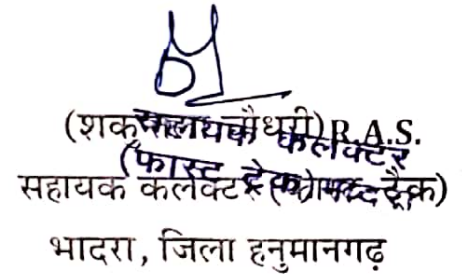 (शकुन्तला चौधरी) R.A.S.
सहायक कलक्टर
(फास्ट ट्रेक)
सहायक कलक्टर (फास्ट ट्रैक)
भादरा, जिला हनुमानगढ़